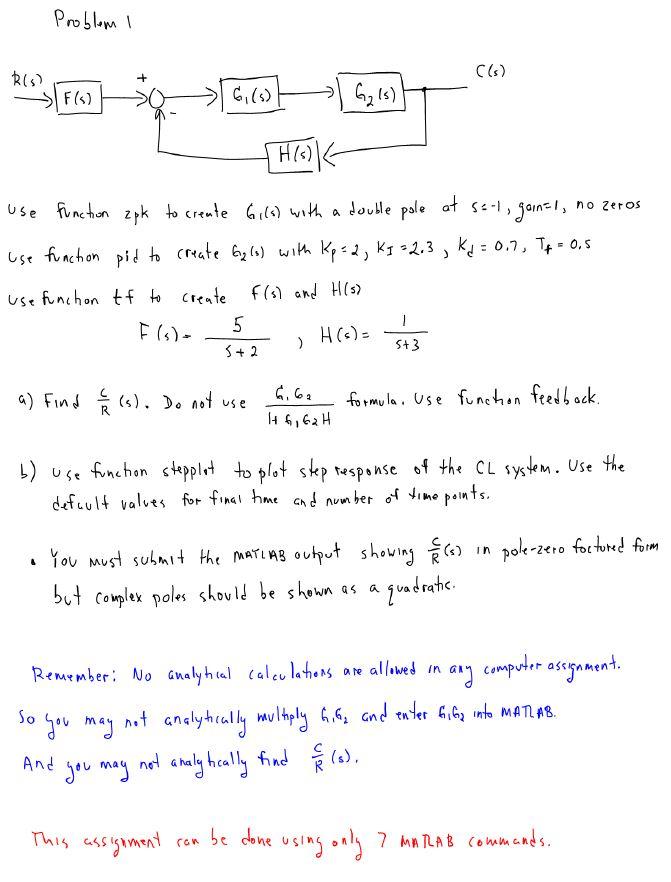 Problem 1
R(s) F(s) + - G₁(s) G₂(s) C(s)
H(s)
Use function zpk to create G₁(s) with a double pole at s=-1, gain=1, no zeros
Use function pid to create G₂(s) with Kp=2, KI=2.3, Kd=0.7, Tf=0.5
Use function tf to create F(s) and H(s)
F(s) = 5/(s+2) , H(s) = 1/(s+3)
a) Find C/R (s). Do not use G₁G₂/(1+G₁G₂H) formula. Use function feedback.
b) Use function stepplot to plot step response of the CL system. Use the
default values for final time and number of time points.
• You must submit the MATLAB output showing C/R (s) in pole-zero factored form
but complex poles should be shown as a quadratic.
Remember: No analytical calculations are allowed in any computer assignment.
So you may not analytically multiply G₁G₂ and enter G₁G₂ into MATLAB.
And you may not analytically find C/R (s).
This assignment can be done using only 7 MATLAB commands.